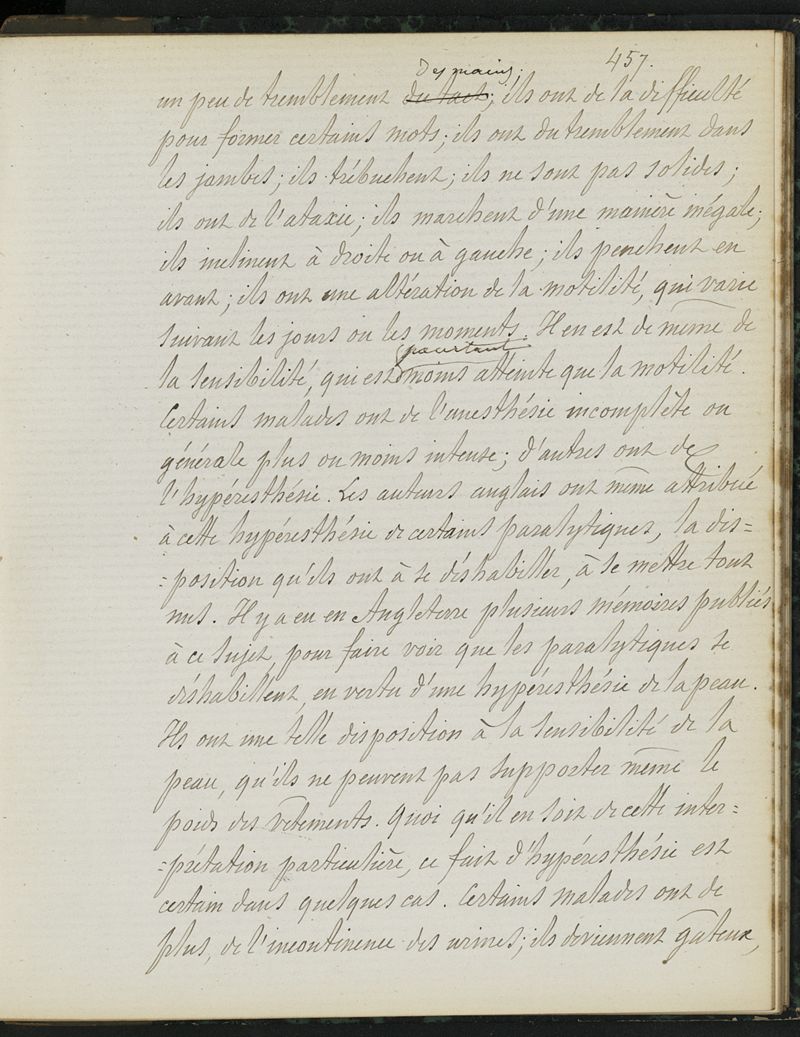 457.
des mains;
un peu de tremblement du tact; ils ont de la difficulté
pour former certains mots; ils ont du tremblement dans
les jambes; ils trébuchent; ils ne sont pas solides;
ils ont de l'ataxie; ils marchent d'une manière inégale;
ils inclinent à droite ou à gauche; ils penchent en
avant; ils ont une altération de la motilité, qui varie
suivant les jours ou les moments. Il en est de même de
pourtant
la sensibilité, qui est moins atteinte que la motilité.
Certains malades ont de l'anesthésie incomplète ou
générale plus ou moins intense; d'autres ont de
l'hypéresthésie. Les auteurs anglais ont même attribué
à cette hypéresthésie de certains paralytiques, la dis=
=position qu'ils ont à se déshabiller, à se mettre tout
nus. Il y a eu en Angleterre plusieurs mémoires publiés
à ce sujet, pour faire voir que les paralytiques se
déshabillent, en vertu d'une hypéresthésie de la peau.
Ils ont une telle disposition à la sensibilité de la
peau, qu'ils ne peuvent pas supporter même le
poids des vêtements. Quoi qu'il en soit de cette inter=
=prétation particulière, ce fait d'hypéresthésie est
certain dans quelques cas. Certains malades ont de
plus, de l'incontinence des urines; ils deviennent gâteux,